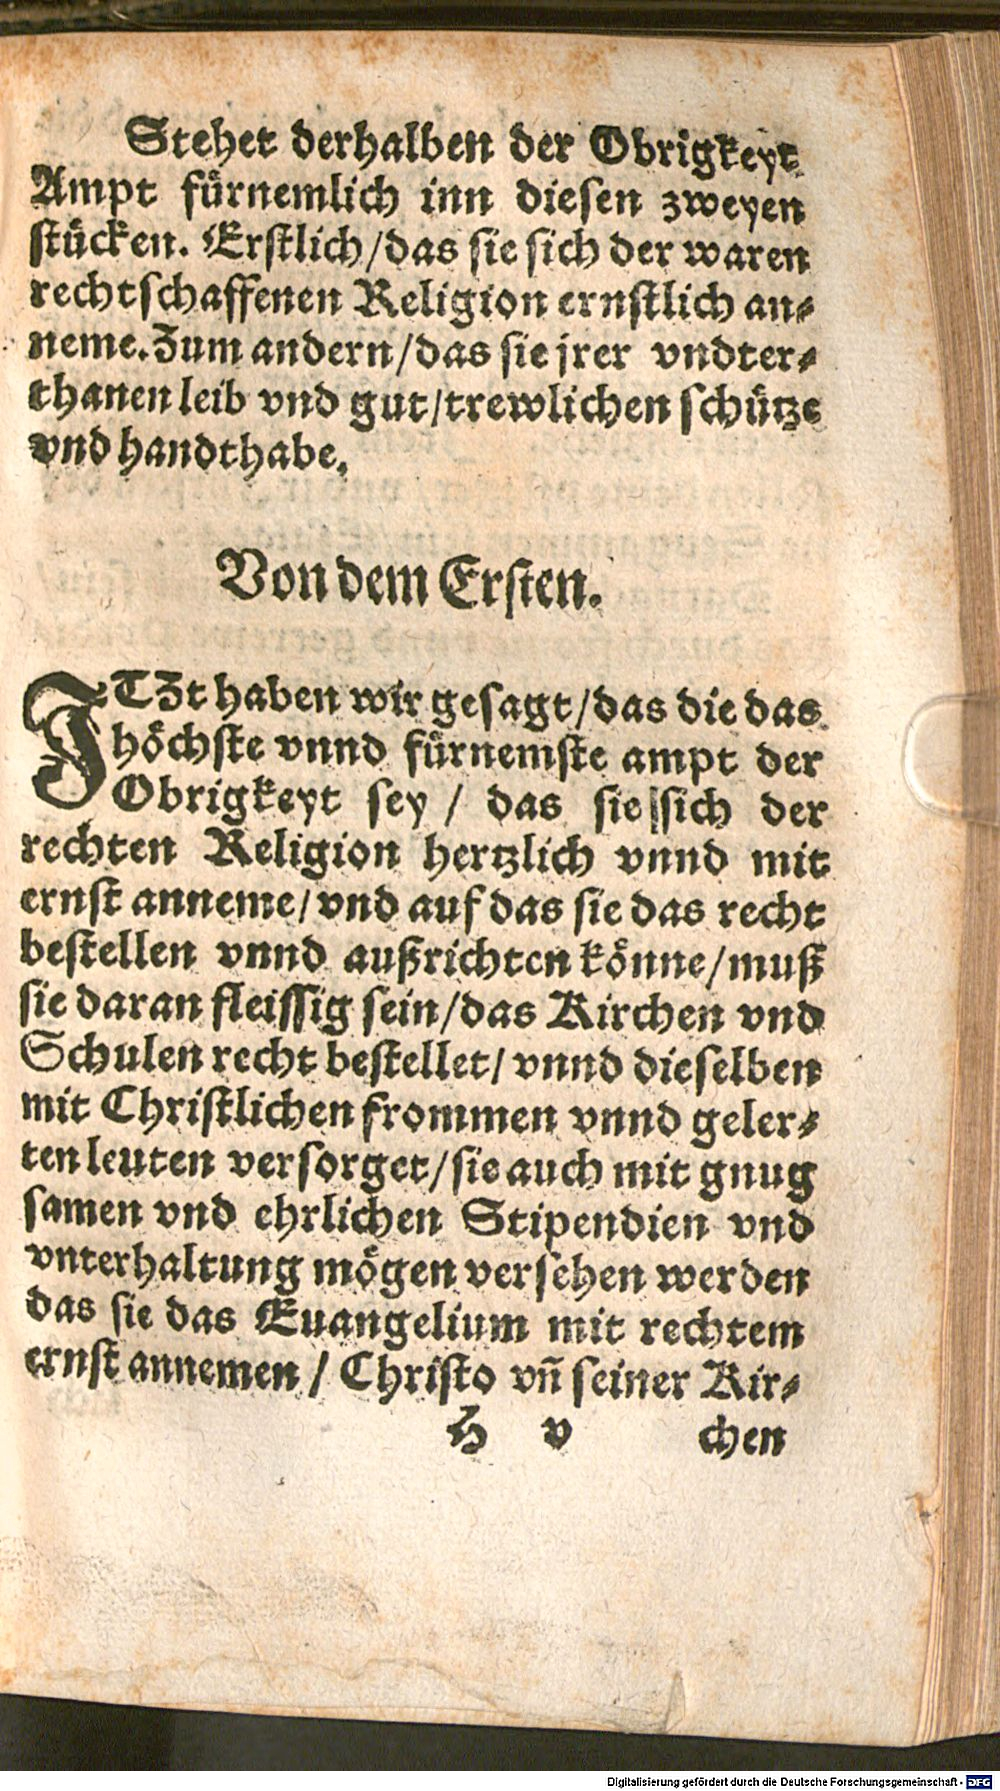 Stehet derhalben der Obrigkeyt
Ampt fürnemlich inn diesen zweyen
stücken. Erstlich/das sie sich der waren
rechtschaffenen Religion ernstlich an⸗
neme. Zum andern/das sie jrer vndter⸗
thanen leib vnd gut/trewlichen schütze
vnd handthabe.
Von dem Ersten.
JTZt haben wir gesagt/das die das
höchste vnnd fürnemste ampt der
Obrigkeyt sey / das sie sich der
rechten Religion hertzlich vnnd mit
ernst anneme/vnd auf das sie das recht
bestellen vnnd außrichten könne/muß
sie daran fleissig sein/das Kirchen vnd
Schulen recht bestellet/ vnnd dieselben
mit Christlichen frommen vnnd geler⸗
ten leuten versorget/sie auch mit gnug
samen vnd ehrlichen Stipendien vnd
vnterhaltung mögen versehen werden
das sie das Euangelium mit rechtem
ernst annemen / Christo vñ seiner Kir⸗
H v chen
Digitalisierung gefördert durch die Deutsche Forschungsgemeinschaft - DFG